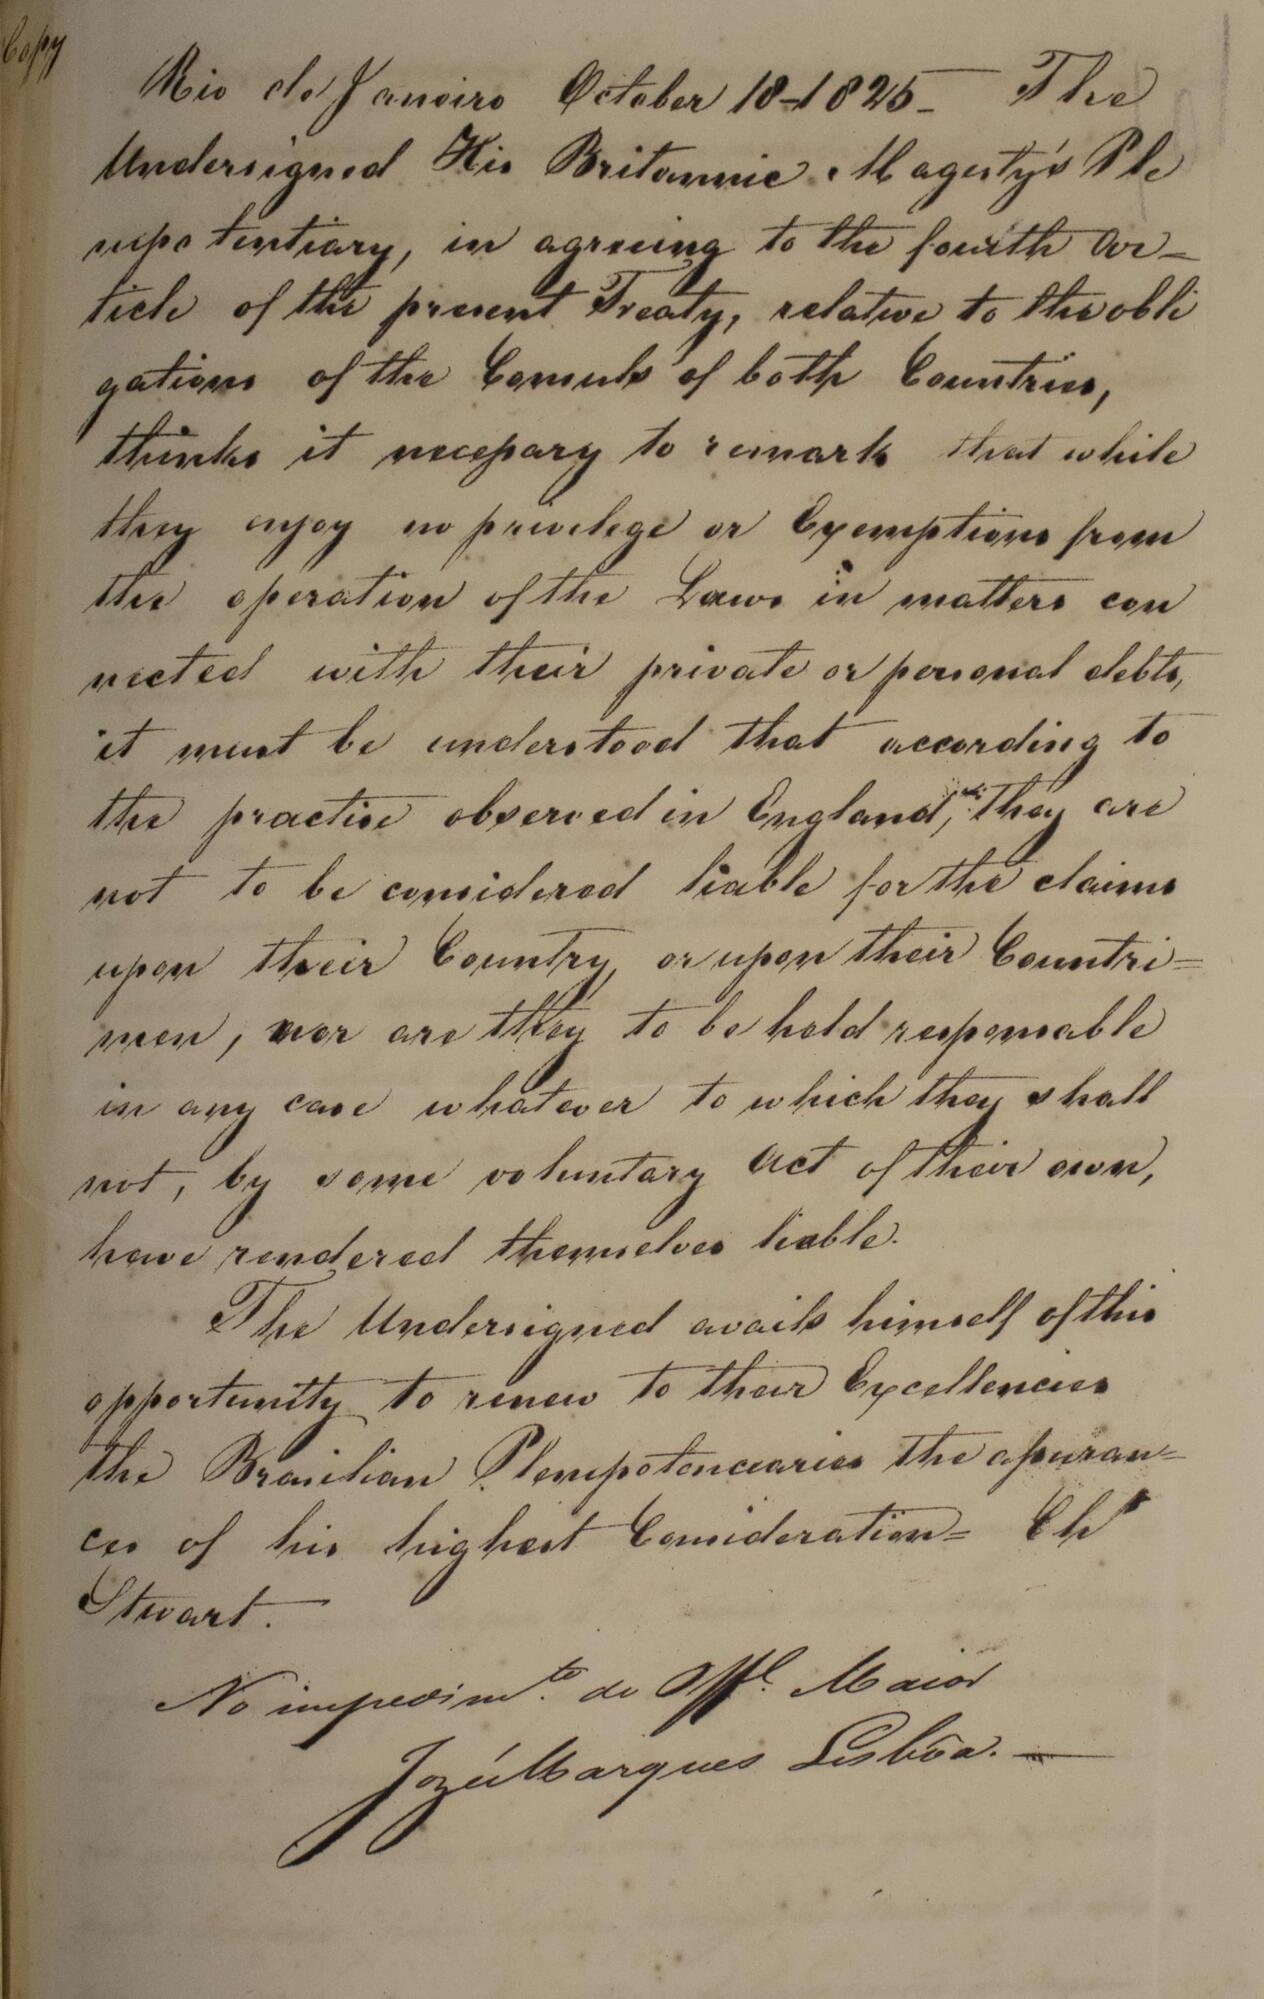 Copy
Rio de Janeiro October 18-1825- The
Undersigned His Britannic Magesty's Ple
nipotentiary, in agreeing to the fourth Ar-
ticle of the present Treaty, relative to the obli
gations of the Consuls of both Countries,
thinks it necessary to remark that while
they enjoy no privilege or Exemptions from
the operation of the Laws in matters con
nected with their private or personal debts,
it must be understood that according to
the practise observed in England, they are
not to be considered liable for the claims
upon their Country, or upon their Countri=
men, nor are they to be held responsable
in any case whatever to which they shall
not, by some voluntary Act of their own,
have rendered themselves liable.
The Undersigned avails himself of this
opportunity to renew to their Excellencies
the Brasilian Plenipotenciaries the assuran=
ces of his highest Consideration= Chs
Stuart.
No impedimto. do Offl. Maior
José Marques Lisbôa.